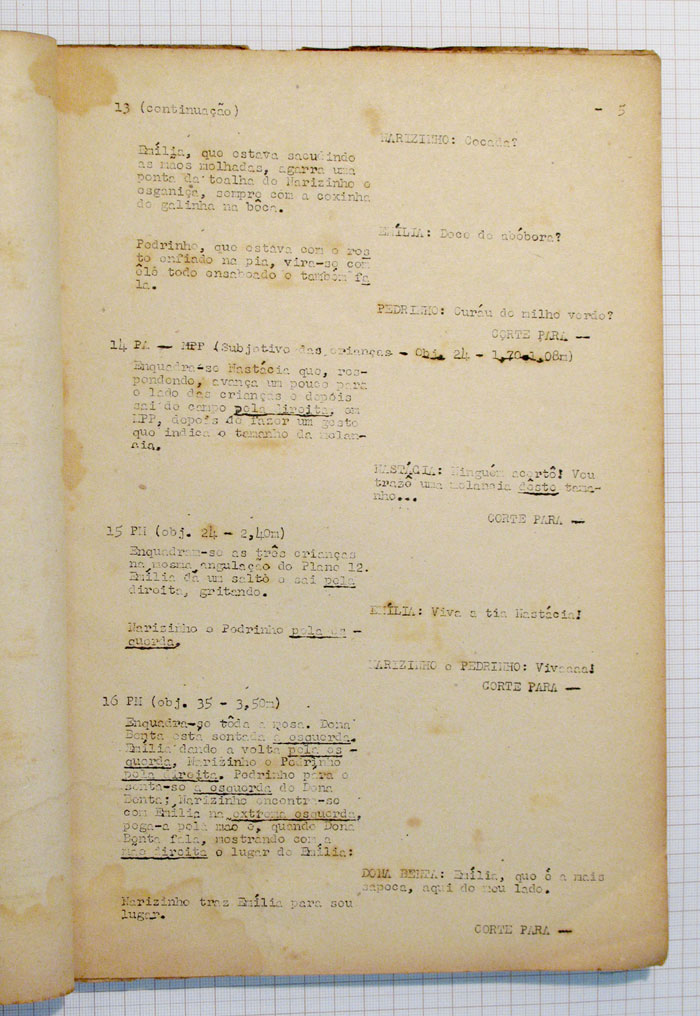 13 (continuação)
- 5
NARIZINHO: Cocada?
Emília, que estava sacudindo
as mãos molhadas, agarra uma
ponta da toalha de Narizinho e
esganiça, sempre com a coxinha
de galinha na bôca.
EMÍLIA: Doce de abóbora?
Pedrinho, que estava com o ros
to enfiado na pia, vira-se com
êle todo ensaboado e também fa
la.
PEDRINHO: Curáu de milho verde?
CORTE PARA —
14 PA — MPP (Subjetivo das crianças - Obj. 24 - 1,70-1,08m)
Enquadra-se Nastácia que, res-
pondendo, avança um pouco para
o lado das crianças e depóis
sai de campo pela direita, em
MPP, depois de fazer um gesto
que indica o tamanho da melan-
cia.
NASTÁCIA: Ninguém acertô! Vou
trazê uma melancia dêste tama-
nho...
CORTE PARA —
15 PM (obj. 24 - 2,40m)
Enquadram-se as três crianças
na mesma angulação do Plano 12.
Emília dá um salto e sai pela
direita, gritando.
EMÍLIA: Viva a tia Nastácia!
Narizinho e Pedrinho pela es -
querda.
NARIZINHO e PEDRINHO: Vivaaaa!
CORTE PARA —
16 PM (obj. 35 - 3,50m)
Enquadra-se tôda a mesa. Dona
Benta está sentada a esquerda.
Emília dando a volta pela es -
querda, Narizinho e Pedrinho
pela direita. Pedrinho para e
senta-se a esquerda de Dona
Benta; Narizinho encontra-se
com Emília na extrema esquerda,
pega-a pela mão e, quando Dona
Benta fala, mostrando com a
mão direita o lugar de Emília:
DONA BENTA: Emília, que é a mais
sapeca, aqui do meu lado.
Narizinho traz Emília para seu
lugar.
CORTE PARA —